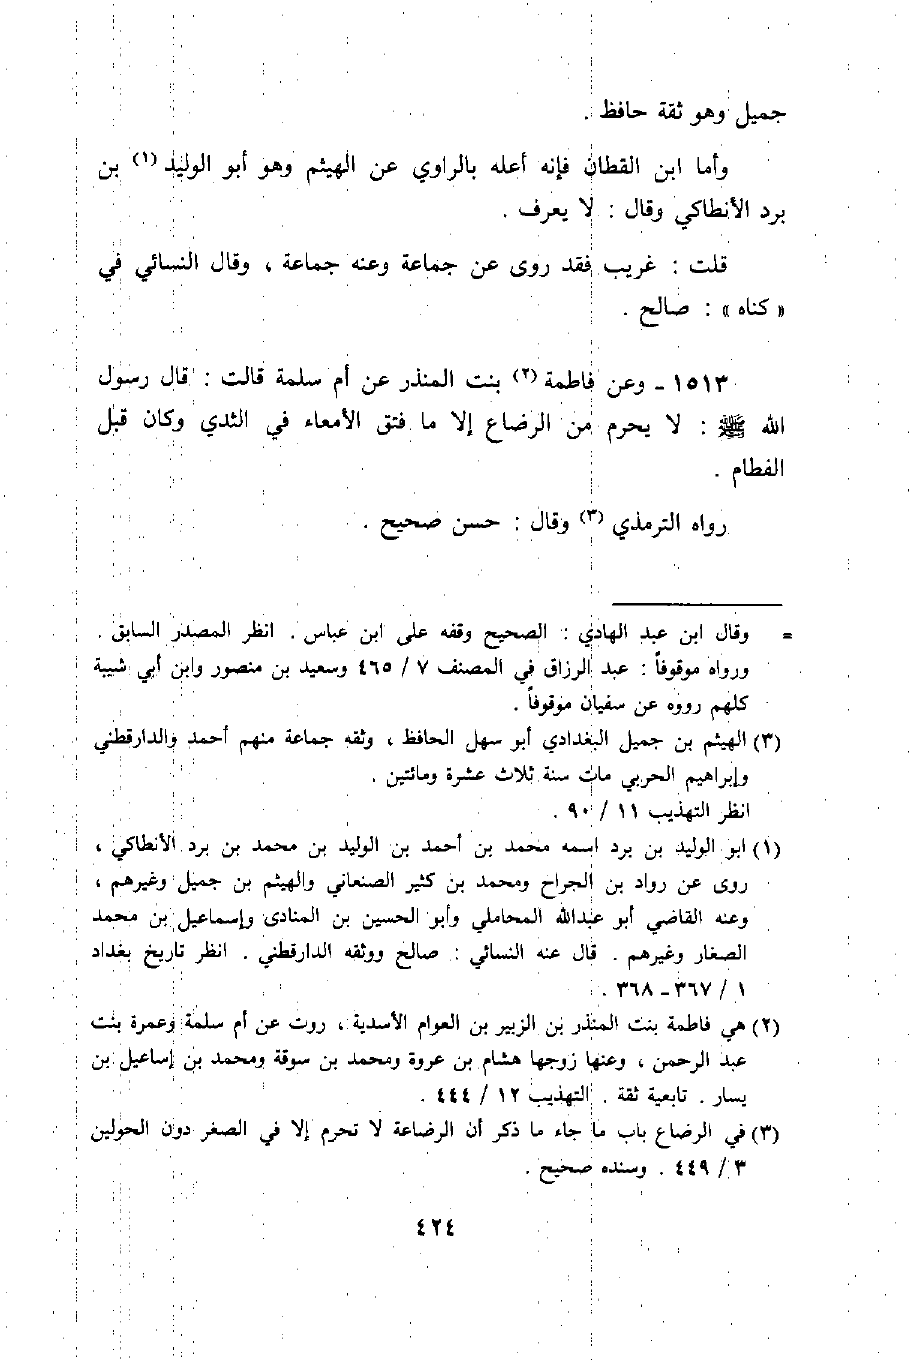 جميل وهو ثقة حافظ .
وأما ابن القطان فإنه أعله بالراوي عن الهيثم وهو أبو الوليد (١) بن
برد الأنطاكي وقال : لا يعرف .
قلت : غريب فقد روى عن جماعة وعنه جماعة ، وقال النسائي في
« كناه » : صالح .
١٥١٣ - وعن فاطمة (٢) بنت المنذر عن أم سلمة قالت : قال رسول
الله ﷺ : لا يحرم من الرضاع إلا ما فتق الأمعاء في الثدي وكان قبل
الفطام .
رواه الترمذي (٣) وقال : حسن صحيح .
= وقال ابن عبد الهادي : الصحيح وقفه على ابن عباس . انظر المصدر السابق .
ورواه موقوفاً : عبد الرزاق في المصنف ٧ / ٤٦٥ وسعيد بن منصور وابن أبي شيبة
كلهم رووه عن سفيان موقوفاً .
(٣) الهيثم بن جميل البغدادي أبو سهل الحافظ ، وثقه جماعة منهم أحمد والدارقطني
وإبراهيم الحربي مات سنة ثلاث عشرة ومائتين .
انظر التهذيب ١١ / ٩٠ .
(١) ابو الوليد بن برد اسمه محمد بن أحمد بن الوليد بن محمد بن برد الأنطاكي ،
روى عن رواد بن الجراح ومحمد بن كثير الصنعاني والهيثم بن جميل وغيرهم ،
وعنه القاضي أبو عبدالله المحاملي وأبو الحسين بن المنادى وإسماعيل بن محمد
الصغار وغيرهم . قال عنه النسائي : صالح ووثقه الدارقطني . انظر تاريخ بغداد
١ / ٣٦٧ - ٣٦٨ .
(٢) هي فاطمة بنت المنذر بن الزبير بن العوام الأسدية ، روت عن أم سلمة وعمرة بنت
عبد الرحمن ، وعنها زوجها هشام بن عروة ومحمد بن سوقة ومحمد بن إساعيل بن
يسار . تابعية ثقة . التهذيب ١٢ / ٤٤٤ .
(٣) في الرضاع باب ما جاء ما ذكر أن الرضاعة لا تحرم إلا في الصغر دون الحولين
٣ / ٤٤٩ . وسنده صحيح .
٤٢٤